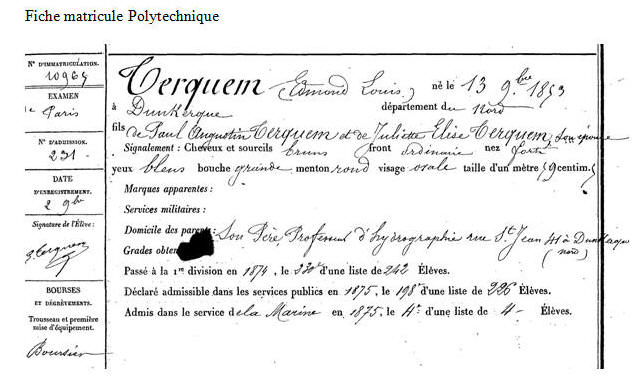 Fiche matricule Polytechnique
N° D'IMMATRICULATION.
10964
EXAMEN
de Paris
N° D'ADMISSION.
231
DATE
D'ENREGISTREMENT.
2 9bre
Signature de l'Élève:
Terquem
BOURSES
ET DÉGRÈVEMENTS.
Trousseau et première
mise d'équipement.
Boursier
Terquem (Edmond Louis.) né le 13 9.bre 1853
à Dunkerque département du Nord
fils de Paul Augustin Terquem et de Juliette Elise Terquem, Son épouse
Signalement: Cheveux et sourcils bruns front ordinaire nez fort
yeux bleus bouche grande menton rond visage ovale taille d'un mètre centim.
Marques apparentes:
Services militaires:
Domicile des parents: Son Père Professeur d'hydrographie rue St Jean 41 à Dunkerque
(nord)
Grades obten
Passé à la 1re division en 1874, le d'une liste de 242 Élèves.
Déclaré admissible dans les services publics en 1875, le 198e d'une liste de 226 Élèves.
Admis dans le service de la Marine en 1875, le 4e d'une liste de 4 Élèves.